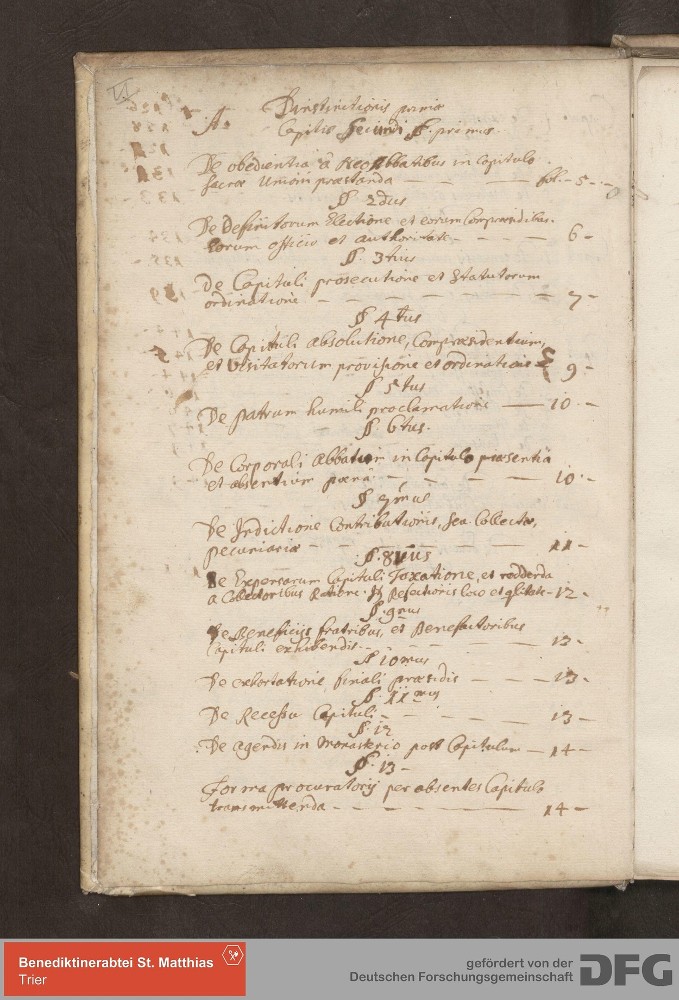 VI
A. Distinctionis primæ
Capitis Secundi §. primus.
De obedientia à Neoabbatibus in Capitulo
sacræ Unionis præstanda — — — fol. — 5 —
§ 2dus
De Definitorum Electione et eorum Compræsidibus.
Eorum officio et authoritate — — — — 6 —
§. 3tius
De Capituli prosecutione et Statutorum
ordinatione — — — — — — — 7 —
§ 4tus
De Capituli absolutione, Compræsidentium,
et Visitatorum provisione et ordinatione 9 —
§ 5tus
De patrum humili proclamatione — 10 —
§. 6tus.
De Corporali Abbatum in Capitulo præsentia
et absentium pœna — — — — 10 —
§ 7mus
De Indictione Contributionis, seu Collectæ,
pecuniariæ — — — — — — 11 —
§. 8vus
De Expensarum Capituli Taxatione, et reddenda
a Collectoribus Ratione. Et Refectionis loco et qlitate — 12 —
§. 9nus
De Beneficijs fratribus, et Benefactoribus
Capituli exhibendis — — — — 13 —
§ 10mus
De exhortatione finali præsidis — — 13 —
§. 11mus
De Recessu Capituli — — — — 13 —
§. 12
De agendis in Monasterio post Capitulum — 14 —
§. 13 —
Forma procuratorij per absentes Capitulo
transmittenda — — — — — — 14 —
Benediktinerabtei St. Matthias
Trier
gefördert von der
Deutschen Forschungsgemeinschaft
DFG